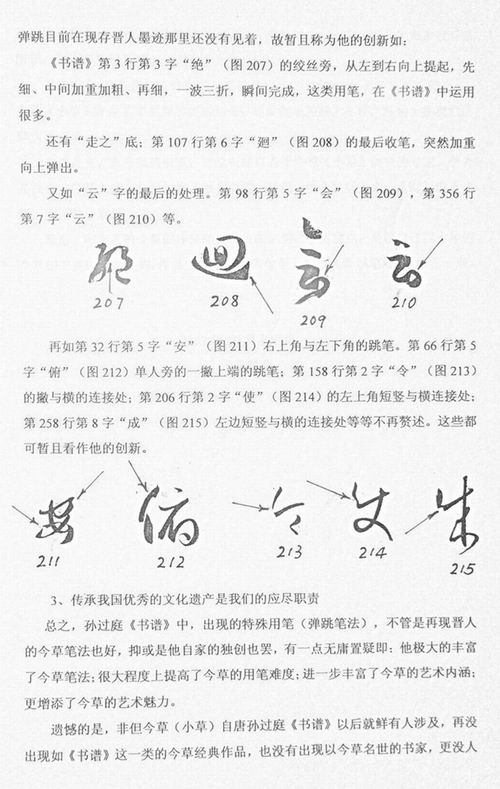 弹跳目前在现存晋人墨迹那里还没有见着，故暂且称为他的创新如：
《书谱》第 3 行第 3 字“绝”（图 207）的绞丝旁，从左到右向上提起，先
细、中间加重加粗、再细，一波三折，瞬间完成，这类用笔，在《书谱》中运用
很多。
还有“走之”底；第 107 行第 6 字“廻”（图 208）的最后收笔，突然加重
向上弹出。
又如“云”字的最后的处理。第 98 行第 5 字“会”（图 209），第 356 行
第 7 字“云”（图 210）等。
207 208 209 210
再如第 32 行第 5 字“安”（图 211）右上角与左下角的跳笔。第 66 行第 5
字“俯”（图 212）单人旁的一撇上端的跳笔；第 158 行第 2 字“令”（图 213）
的撇与横的连接处；第 206 行第 2 字“使”（图 214）的左上角短竖与横连接处；
第 258 行第 8 字“成”（图 215）左边短竖与横的连接处等等不再赘述。这些都
可暂且看作他的创新。
211 212 213 214 215
3、传承我国优秀的文化遗产是我们的应尽职责
总之，孙过庭《书谱》中，出现的特殊用笔（弹跳笔法），不管是再现晋人
的今草笔法也好，抑或是他自家的独创也罢，有一点无庸置疑即：他极大的丰富
了今草笔法；很大程度上提高了今草的用笔难度；进一步丰富了今草的艺术内涵；
更增添了今草的艺术魅力。
遗憾的是，非但今草（小草）自唐孙过庭《书谱》以后就鲜有人涉及，再没
出现如《书谱》这一类的今草经典作品，也没有出现以今草名世的书家，更没人